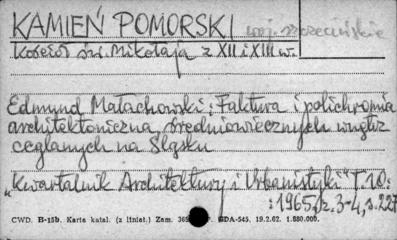 KAMIEŃ POMORSKI woj. szczecińskie
Kościół św. Mikołaja z XII i XIII w.
Edmund Małachowski: Faktura i polichromia
architektoniczna średniowiecznych wnętrz
ceglanych na Śląsku
"Kwartalnik Architektury i Urbanistyki" T. 10:
: 1965, z. 3-4, s. 227
CWD. B-15b. Karta katal. (z liniat.) Zam. GDA-545, 19.2.62. 1.880.000.